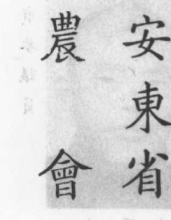 安東省
農會